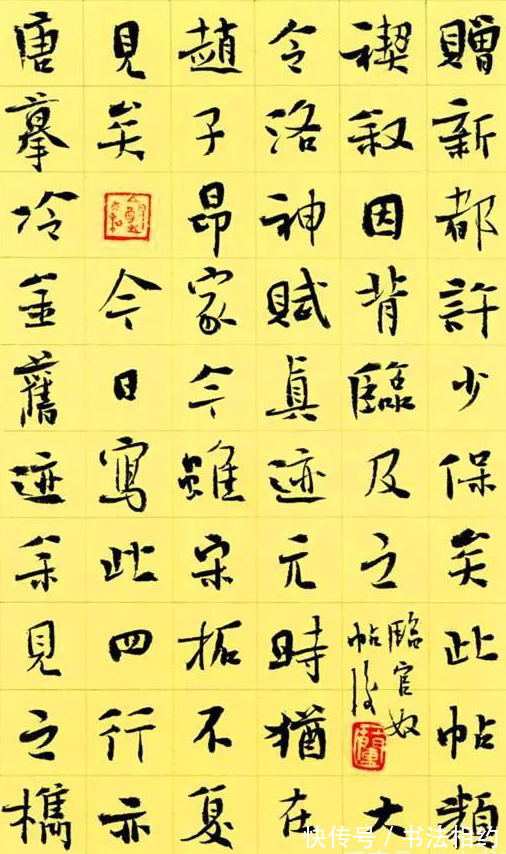 贈新都許少保矣此帖類
禊叙因背臨及之
臨官奴
帖後
大
令洛神賦真迹元時猶在
趙子昂家今雖宋拓不復
見矣
今日寫此四行亦
唐摹冷金舊迹余見之檇
快传号 / 书法相约